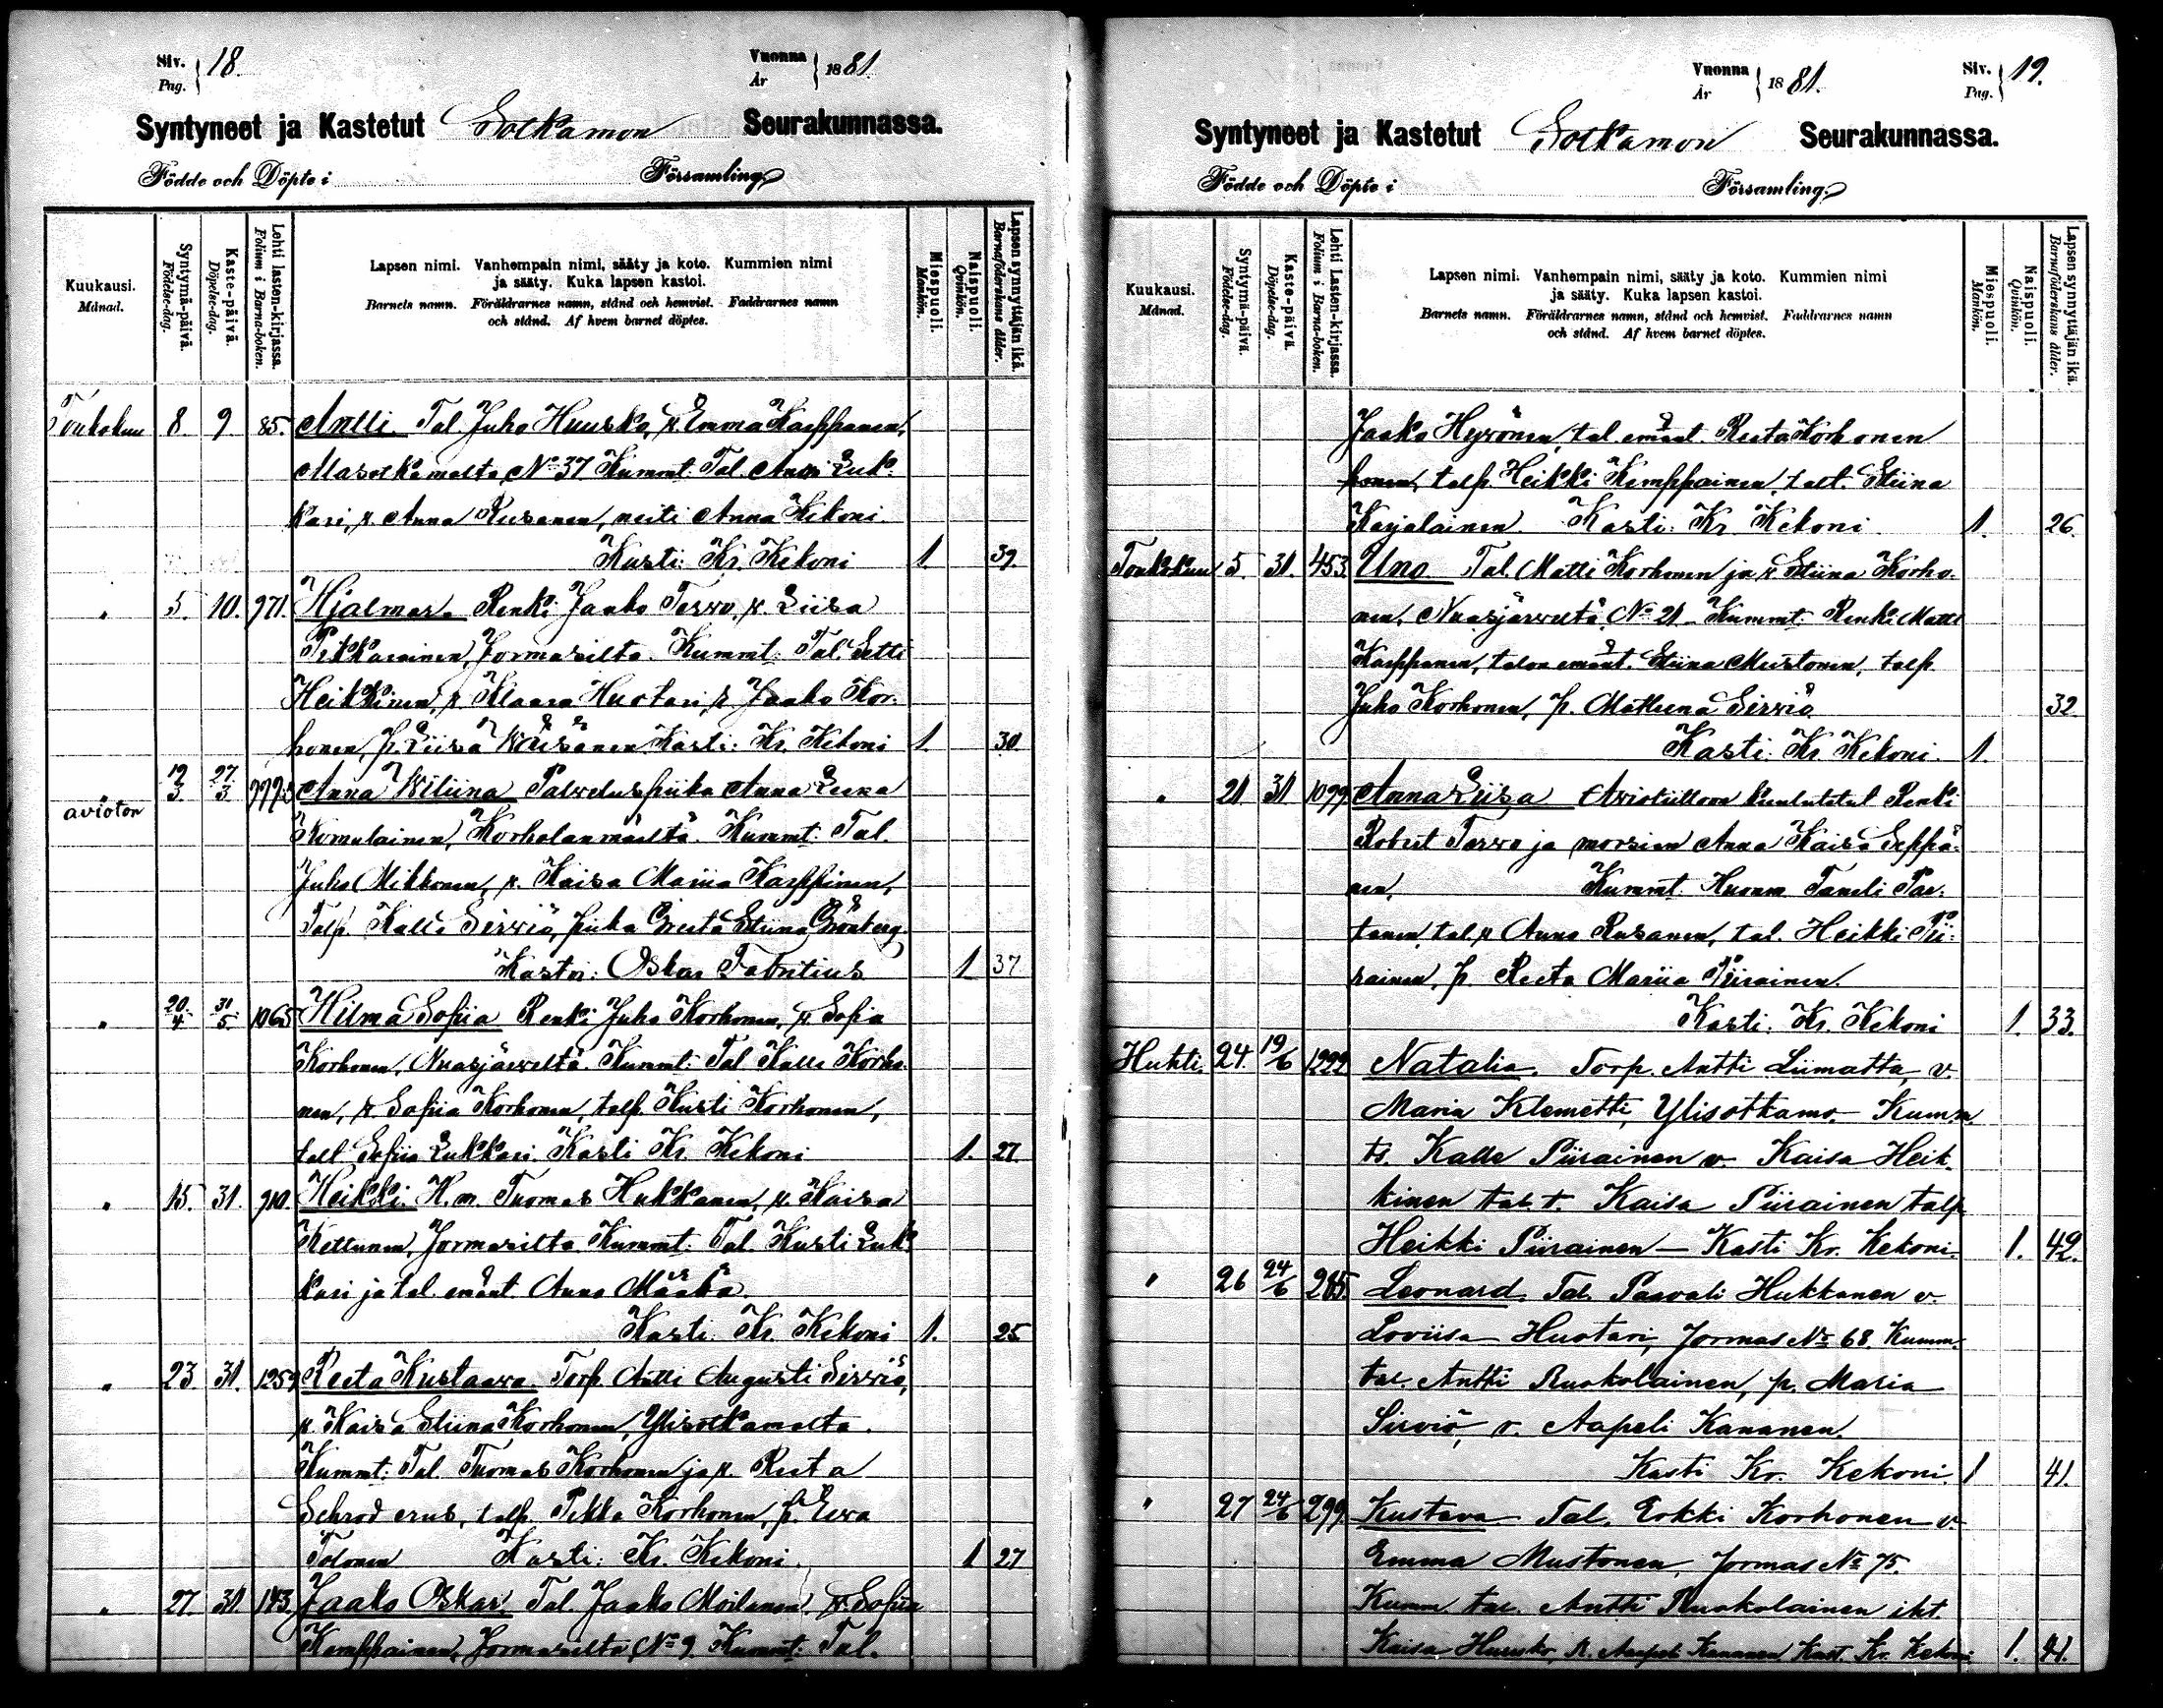 Siv. Pag. } 18.
Vuonna År } 1881.
Syntyneet ja Kastetut Sotkamon Seurakunnassa.
Födde och Döpte i Församling.
Kuukausi. Månad.
Syntymä-päivä. Födelse-dag.
Kaste-päivä. Döpelse-dag.
Lehti lasten-kirjassa. Folium i Barna-boken.
Lapsen nimi. Vanhempain nimi, sääty ja koto. Kummien nimi
ja sääty. Kuka lapsen kastoi.
Barnets namn. Föräldrarnes namn, stånd och hemvist. Faddrarnes namn
och stånd. Af hvem barnet döptes.
Miespuoli. Mankön.
Naispuoli. Qvinkön.
Lapsen synnyttäjän ikä. Barnaföderskans ålder.
Toukokuu 8. 9. 85. Antti Tal. Juho Huusko, v. Emma Karppanen,
Alasotkamolta No 37 Kummt: Tal. Antti Luk-
kari, v. Anna Rusanen, neiti Anna Kekoni.
Kasti: Kr. Kekoni 1. 39.
" 5. 10. 971. Hjalmar. Renki Jaako Terwo, v. Liisa
Pikkarainen, Jormasilta. Kummt: Tal. Setti
Heikkinen, v. Klaara Huotari, r. Jaako Kor-
honen, p. Liisa Wäisänen Kasti: Kr. Kekoni 1. 30
" avioton 12/3 27/3 Anna Wiliina Palveluspiika Anna Leena
Komulainen, Korholanmäeltä. Kummt: Tal.
Juho Mikkonen, v. Kaisa Mariia Karppinen,
Talp. Kalle Sirwiö, piika Greeta Stiina Grönberg.
Kastoi: Oskar Fabritius 1 37
" 20/4 31/5 1065 Hilma Sofiia Renki Juho Korhonen, v. Sofia
Korhonen, Nuasjärveltä. Kummt: Tal Kalle Korho-
nen, v. Sofiia Korhonen, talp. Kusti Korhonen,
talt Sofiia Lukkari. Kasti Kr. Kekoni 1. 27.
" 15. 31. 910. Heikki. H.m. Tuomas Hukkanen, v. Kaisa
Kettunen, Jormasilta Kummt: Tal. Kusti Luk-
kari ja tal. emänt. Anna Määttä.
Kasti: Kr. Kekoni 1. 25
" 23. 31. 1259 Reeta Kustaawa Torp. Antti Augusti Sirwiö,
v. Kaisa Stiina Korhonen, Ylisotkamolta.
Kummt: Tal. Tuomas Korhonen ja v. Reeta
Schroderus, talp. Pekka Korhonen, p. Eeva
Tolonen Kasti: Kr. Kekoni. 1 27
" 27. 31. 143. Jaako Oskar. Tal. Jaako Moilanen. v. Sofiia
Kemppainen, Jormasilta, No 9. Kummt: Tal.
Vuonna År } 1881.
Siv. Pag. } 19.
Syntyneet ja Kastetut Sotkamon Seurakunnassa.
Födde och Döpte i Församling.
Kuukausi. Månad.
Syntymä-päivä. Födelse-dag.
Kaste-päivä. Döpelse-dag.
Lehti Lasten-kirjassa. Folium i Barna-boken.
Lapsen nimi. Vanhempain nimi, sääty ja koto. Kummien nimi
ja sääty. Kuka lapsen kastoi.
Barnets namn. Föräldrarnes namn, stånd och hemvist. Faddrarnes namn
och stånd. Af hvem barnet döptes.
Miespuoli. Mankön.
Naispuoli. Qvinkön.
Lapsen synnyttäjän ikä. Barnaföderskans ålder.
Jaako Heyrönen, tal. emänt. Reeta Korhonen
talp. Heikki Kemppainen, talt. Stiina
Karjalainen. Kasti: Kr. Kekoni 1. 26.
Toukokuu 5. 31. 453. Uno. Tal. Matti Korhonen ja v. Stiina Korho-
nen, Nuasjärveltä, No 21. Kummt: Renki Matti
Karppanen, talon emänt. Stiina Mustonen, talp.
Juho Korhonen, p. Matleena Sirwiö. 32
Kasti: Kr. Kekoni. 1.
" 21 31 1099 Anna Liisa Avioliittoon kuulutetut Renki
Robert Terwo ja morsian Anna Kaisa Seppä-
nen. Kummt: Huonm Taneli Par-
tanen, tal. v. Anna Rusanen, tal. Heikki Pii-
rainen, p. Reeta Mariia Piirainen.
Kasti: Kr. Kekoni 1. 33.
Huhti. 24. 19/6 1222 Natalia. Torp. Antti Liimatta, v.
Maria Klemetti, Ylisotkamo. Kumm.
ts. Kalle Piirainen v. Kaisa Heik-
kinen tal. t. Kaisa Piirainen talp
Heikki Piirainen — Kasti Kr. Kekoni. 1. 42.
" 26 24/6 285. Leonard. Tal. Paavali Hukkanen v.
Loviisa Huotari, Jormas No 68. Kumm.
tal. Antti Ruokolainen, p. Maria
Sirviö, r. Aapeli Kananen.
Kasti Kr. Kekoni. 1 41.
" 27 24/6 299. Kustava Tal. Erkki Korhonen v.
Emma Mustonen, Jormas No 75.
Kumm. tal. Antti Ruokolainen itst.
Kaisa Huusko, R. Aapeli Kananen Kast. Kr. Kekoni 1. 41.